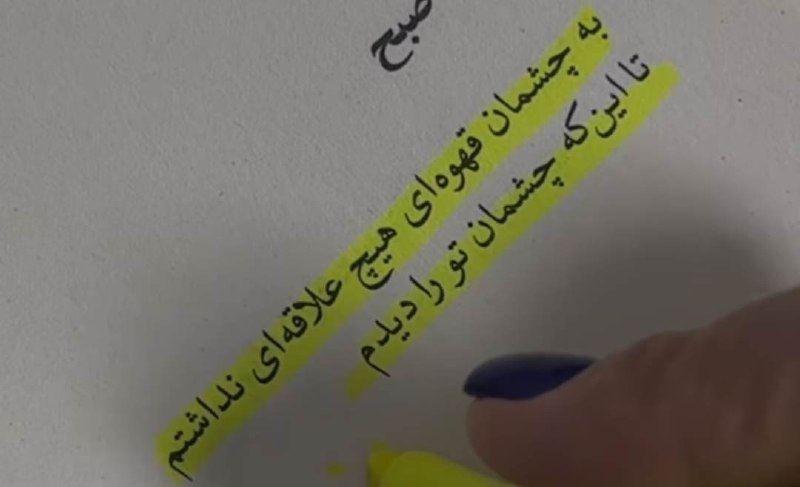 صبح
به چشمان قهوه‌ای هیچ علاقه‌ای نداشتم
تا این‌که چشمان تو را دیدم